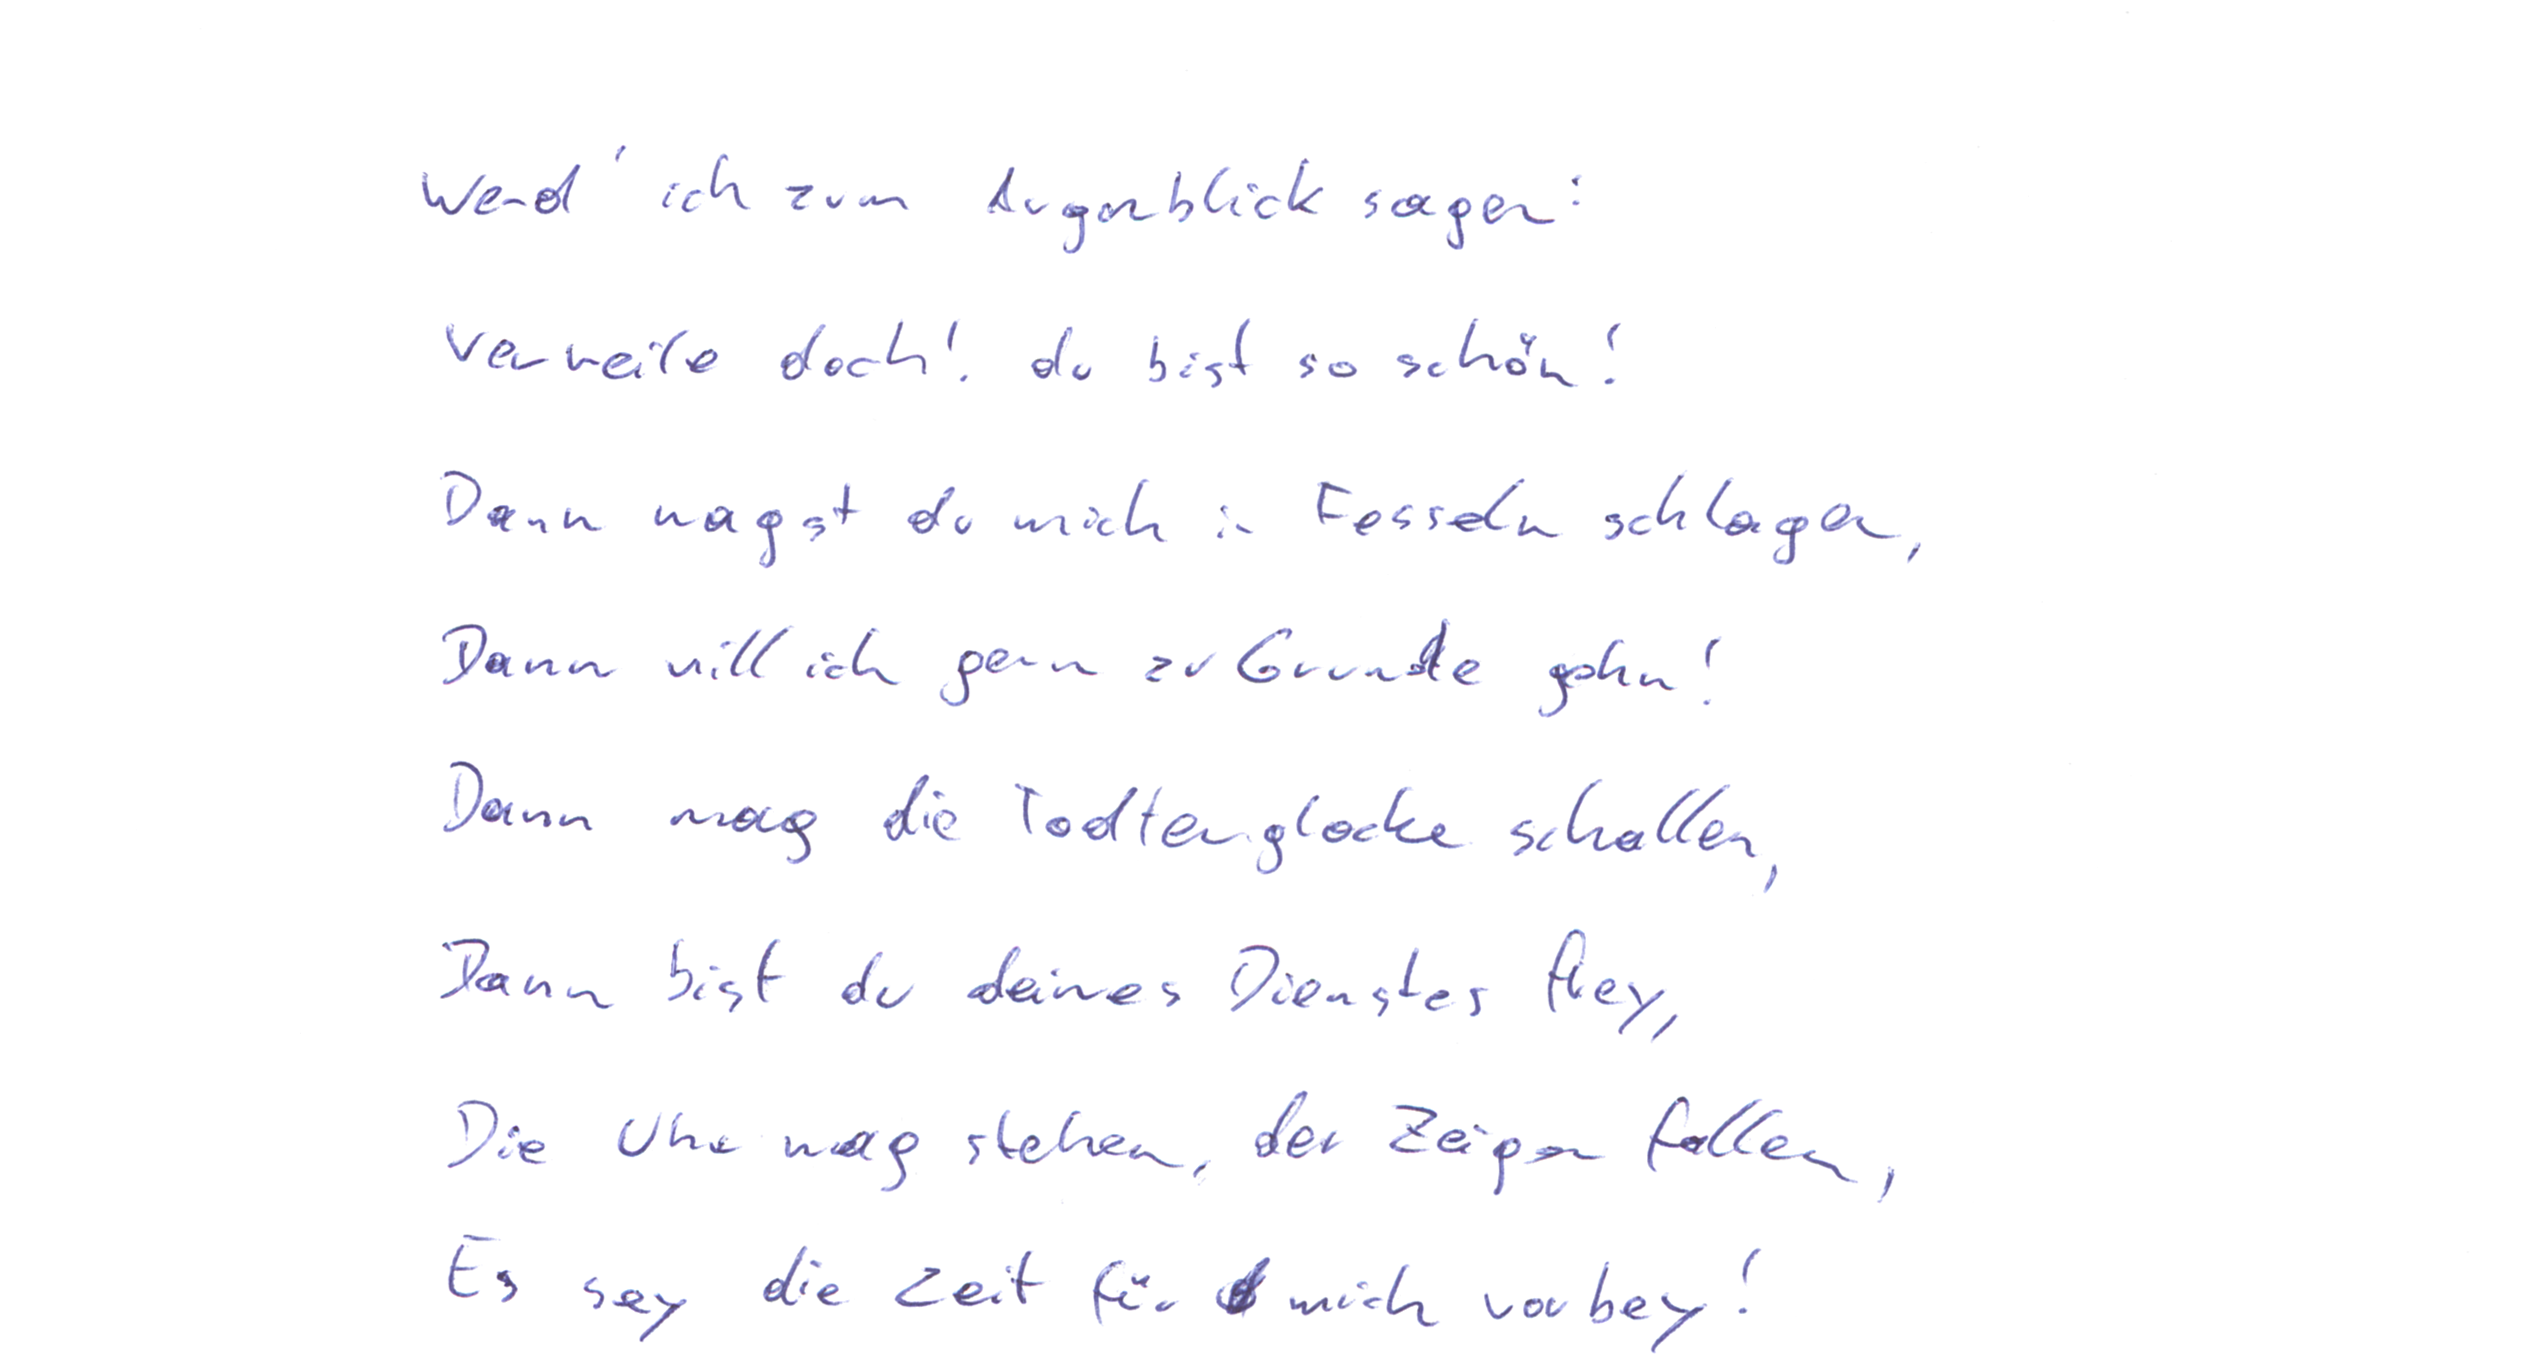 Werd' ich zum Augenblick sagen:
Verweile doch! du bist so schön!
Dann magst du mich in Fesseln schlagen,
Dann will ich gern zu Grunde gehn!
Dann mag die Todtenglocke schallen,
Dann bist du deines Dienstes frey,
Die Uhr mag stehen, der Zeiger fallen,
Es sey die Zeit für mich vorbey!